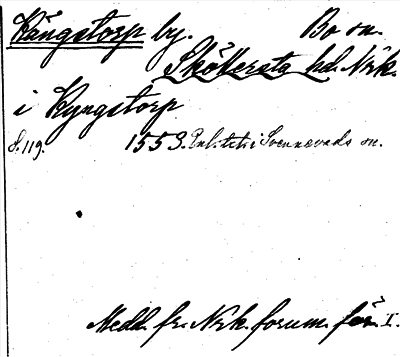 Kångstorp by. Bo sn.
Sköllersta hd. Nrk.
i Kyngstorp
S. 119. 1553. Enl. titel i Svennevads sn.
Medd. fr. Nrk. fornm. för. I.